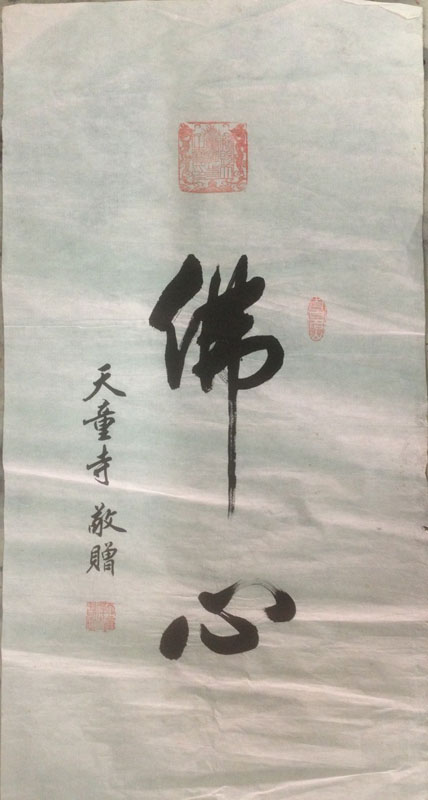 佛心
天童寺 敬贈